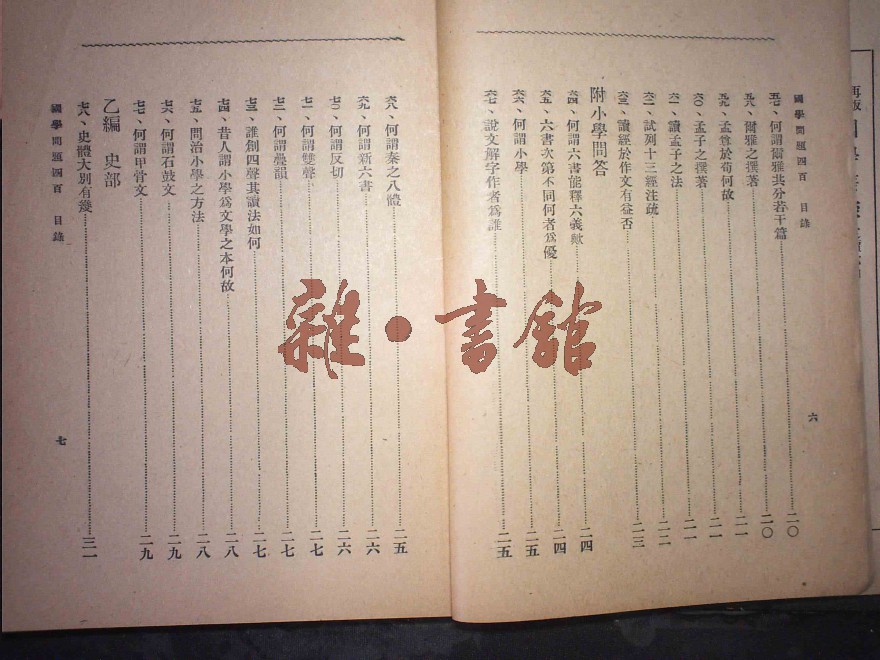 國學問題四百 目錄
五七、何謂爾雅共分若干篇 二〇
五八、爾雅之撰著 二一
五九、孟詹於荀何故 二一
六〇、孟子之撰著 二一
六一、讀孟子之法 二一
六二、試列十三經注疏 二二
六三、讀經於作文有益否 二三
附小學問答
六四、何謂六書能釋六義歟 二四
六五、六書次第不同何者爲優 二四
六六、何謂小學 二五
六七、說文解字作者爲誰 二五
六
六八、何謂秦之八體 二五
六九、何謂新六書 二六
七〇、何謂反切 二六
七一、何謂雙聲 二七
七二、何謂疊韻 二七
七三、誰創四聲其讀法如何 二七
七四、昔人謂小學爲文學之本何故 二八
七五、問治小學之方法 二八
七六、何謂石鼓文 二九
七七、何謂甲骨文 二九
乙編 史部
七八、史體大別有幾 三一
國學問題四百 目錄
七
雜·書館